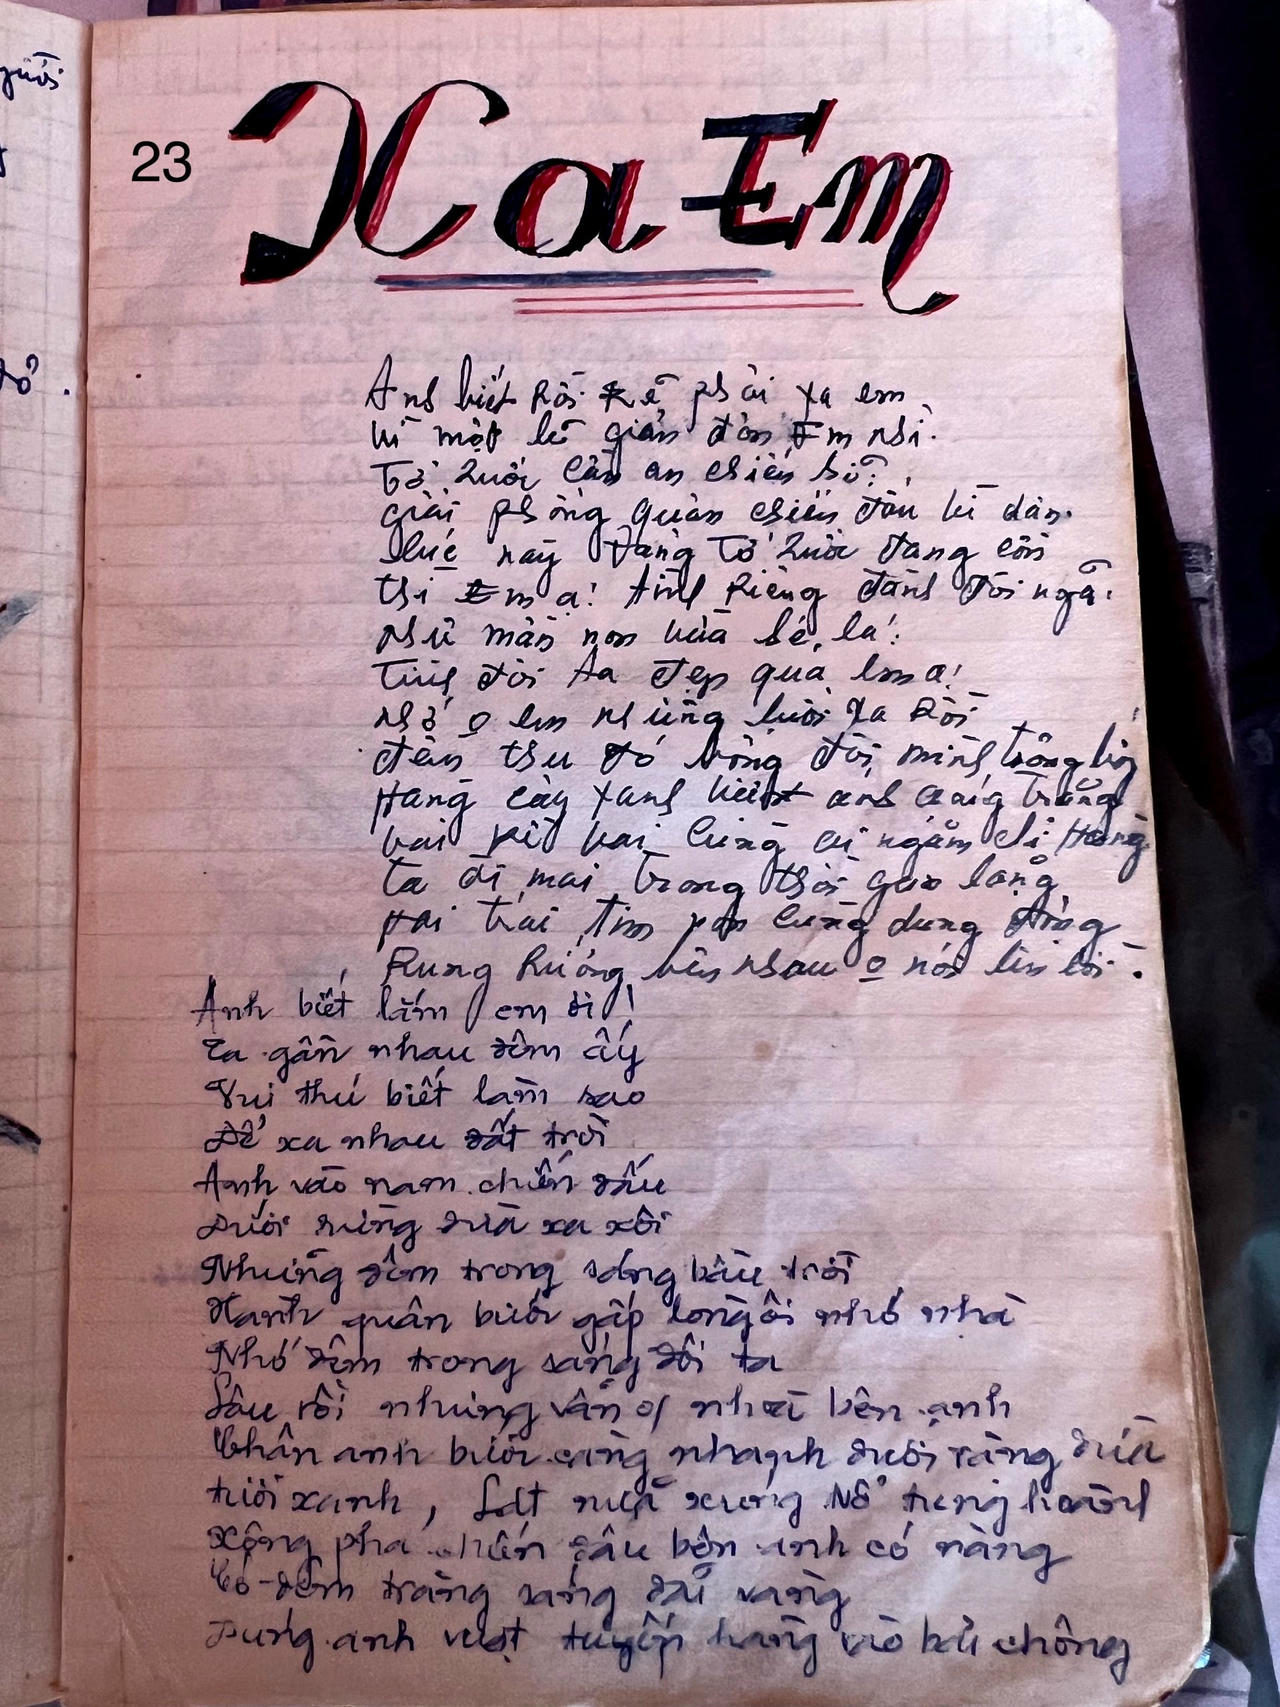 người
23
Xa Em
đó.
Anh biết rồi sẽ phải xa em
Vì một lẽ giản đơn Em nhỉ.
Tổ quốc cần an chiến sĩ?
giải phóng quân chiến đấu vì dân.
Lúc này Đảng Tổ quốc đang cần
thì Em ạ! tình riêng đành đôi ngả.
như mầm non vừa hé lá!
Tình đời ta đẹp quá em ạ!
Nhớ o em những buổi xa rồi
đêm thu đó bóng đôi mình
Hàng cây xanh biết ánh ang trăng
vai kề vai cùng em ngắm chị Hằng
ta đi mãi trong thời gian lặng
Hai trái tim son cùng dung động
Rung Rướng bên nhau o nói lên lời.
Anh biết lắm em ơi!
Ta gần nhau đêm ấy
Vui thú biết làm sao
Để xa nhau đất trời
Anh vào nam chiến đấu
Dưới rừng dừa xa xôi
Những đêm trong sáng bầu trời
Hành quân bước gấp lòng ôi nhớ nhà
Nhớ đêm trong sáng đôi ta
Lâu rồi nhưng vẫn như bên anh
Chân anh bước càng nhanh dưới rặng dừa
tươi xanh, Lát nữa xung Nổ tung
Xông pha chiến đấu bên anh có nàng
Có đêm trăng sáng vàng
anh vượt tuyến hàng rào chông